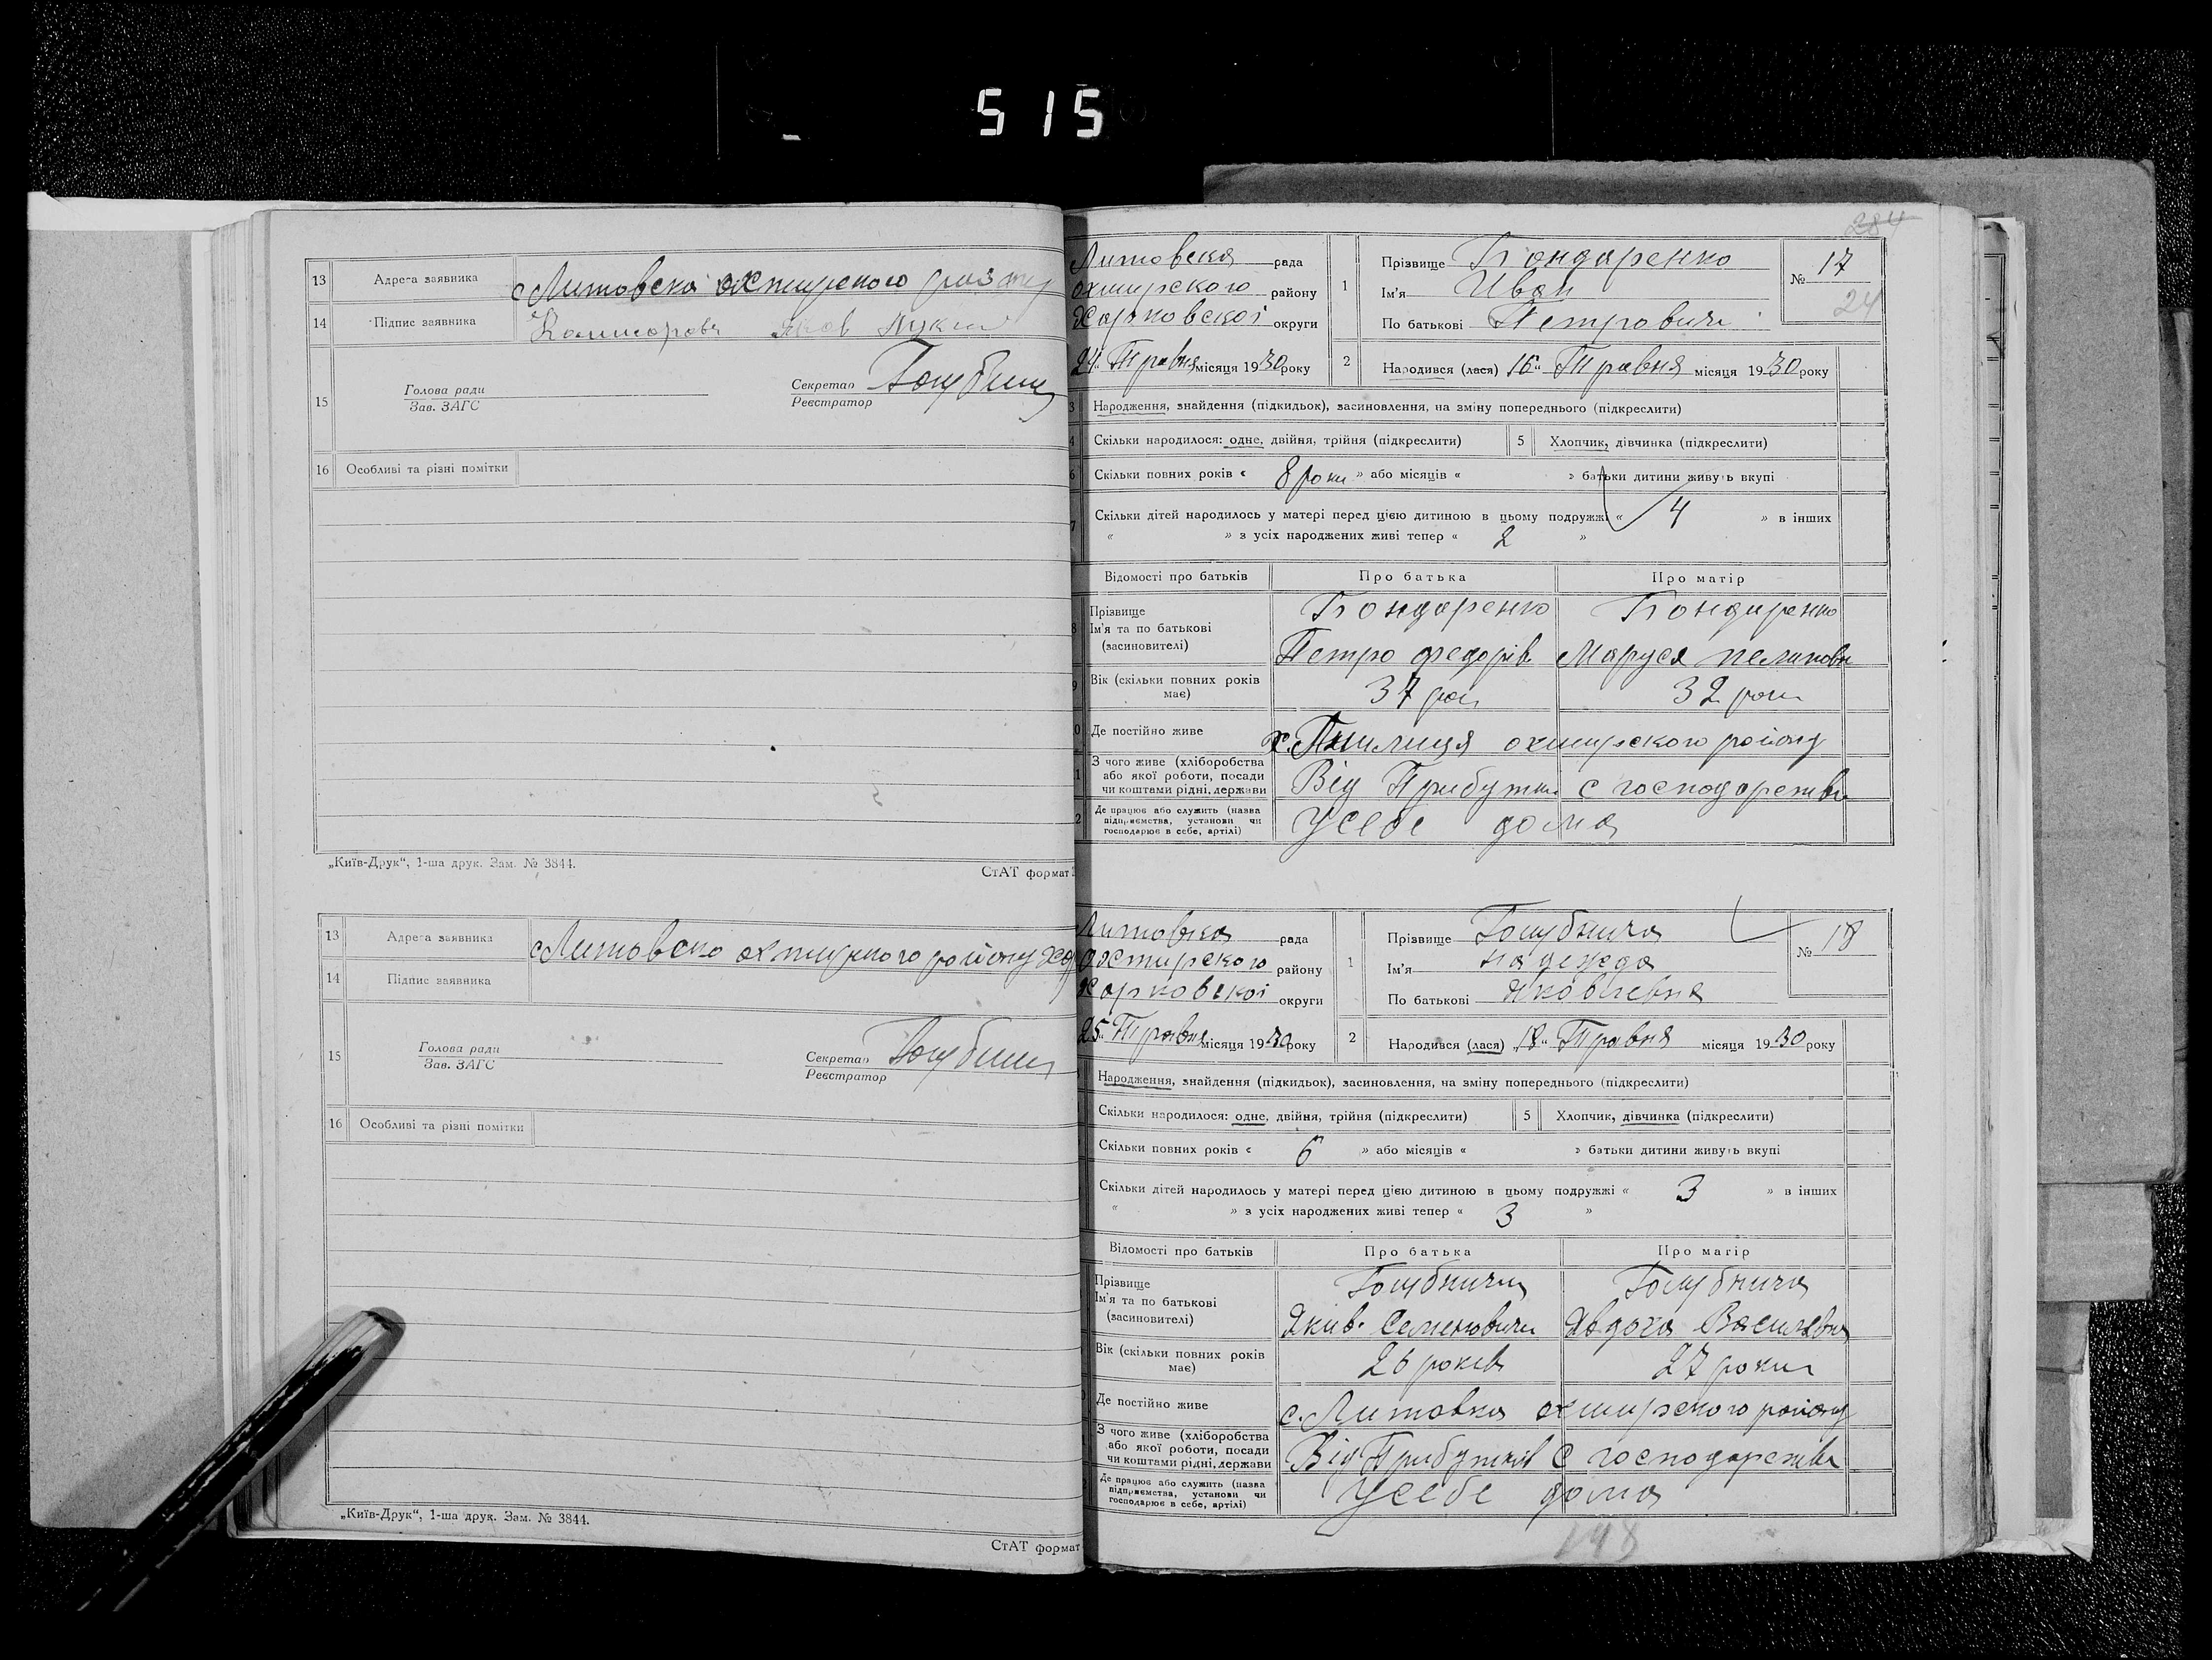 515
13 Адреса заявника с Литовско охтирского району
14 Підпис заявника Яков
15 Голова ради
Зав. ЗАГС
Секретар
Реєстратор
16 Особливі та різні помітки
„Київ-Друк“, 1-ша друк. Зам. № 3844.
СтАТ формат
13 Адреса заявника с Литовско району
14 Підпис заявника
15 Голова ради
Зав. ЗАГС
Секретар
Реєстратор
16 Особливі та різні помітки
„Київ-Друк“, 1-ша друк. Зам. № 3844.
СтАТ формат
284
Литовска рада
охтирского району
Харковскої округи
24 Травня місяця 1930 року
1 Прізвище Бондаренко
Ім'я Иван
По батькові Петрович
№ 17
24
2 Народився (лася) 16 Травня місяця 1930 року
3 Народження, знайдення (підкидьок), засиновлення, на зміну попереднього (підкреслити)
4 Скільки народилося: одне, двійня, трійня (підкреслити) 5 Хлопчик, дівчинка (підкреслити)
6 Скільки повних років « 8 роки » або місяців « » батьки дитини живуть вкупі
7 Скільки дітей народилось у матері перед цією дитиною в цьому подружжі « 4 » в інших
« » з усіх народжених живі тепер « 2 »
Відомості про батьків Про батька Про матір
8 Прізвище Бондаренко Бондаренко
Ім'я та по батькові
(засиновителі) Петро федорів Маруся
9 Вік (скільки повних років має) 37 рок 32 роки
Де постійно живе х. охтирского району
З чого живе (хліборобства
або якої роботи, посади
чи коштами рідні, держави Від Прибутка с господарства
Де працює або служить (назва
підприємства, установи чи
господарює в себе, артілі) Усебе дома
Литовска рада
Охтирского району
Харковскої округи
25 Травня місяця 1930 року
1 Прізвище Голубнича
Ім'я надежда
По батькові Яковлевна
№ 18
2 Народився (лася) „18“ Травня місяця 1930 року
Народження, знайдення (підкидьок), засиновлення, на зміну попереднього (підкреслити)
Скільки народилося: одне, двійня, трійня (підкреслити) 5 Хлопчик, дівчинка (підкреслити)
Скільки повних років « 6 » або місяців « » батьки дитини живуть вкупі
Скільки дітей народилось у матері перед цією дитиною в цьому подружжі « 3 » в інших
« » з усіх народжених живі тепер « 3 »
Відомості про батьків Про батька Про матір
Прізвище Голубничи Голубнича
Ім'я та по батькові
(засиновителі) Якив. Семенович Явдоха Василевна
Вік (скільки повних років має) 26 років 27 роки
Де постійно живе с. Литовка охтирского району
З чого живе (хліборобства
або якої роботи, посади
чи коштами рідні, держави Від Прибутків с господарства
Де працює або служить (назва
підприємства, установи чи
господарює в себе, артілі) Усебе дома
148